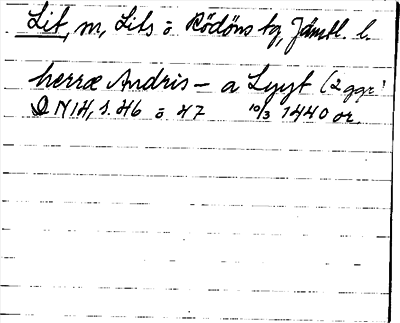 Lit, m, Lits o Rödöns tg, Jämtl. l.
herræ Andris – a Lyyt (2 ggr)
DN14, s. 46 o 47 10/3 1440 or.